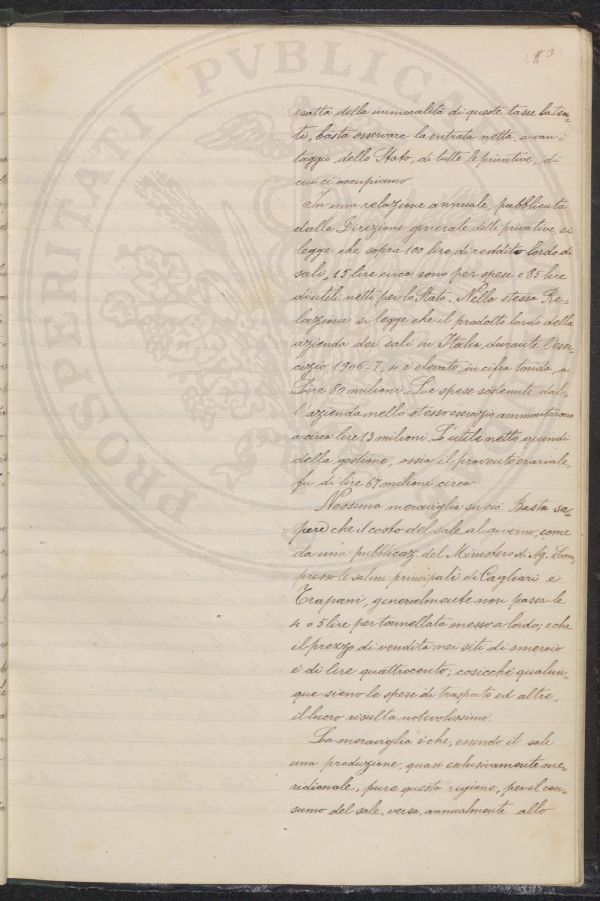 83
esatta della immoralità di queste tasse laten-
ti, basta osservare la entrata netta, a van-
taggio dello Stato, di tutte le privative, di
cui ci occupiamo
In una relazione annuale, pubblicata
dalla Direzione generale delle privative, si
legge che sopra 100 lire, di reddito lordo di
sale, 15 lire circa sono per spese e 85 lire
di utili netti per lo Stato. Nella stessa Re-
lazione si legge che il prodotto lordo della
azienda dei sali in Italia, durante l'eser-
cizio 1906-7, si è elevato, in cifra tonda, a
Lire 80 milioni. Le spese sostenute dal-
l'azienda nello stesso esercizio ammontarono
a circa lire 13 milioni. L'utile netto, quindi
della gestione, ossia il provento erariale,
fu di lire 67 milioni circa
Nessuna meraviglia su ciò. Basta sa-
pere che il costo del sale al governo, come
da una pubblicaz. del Ministero di Ag.
presso le saline principali di Cagliari e
Trapani, generalmente non passa le
4 o 5 lire per tonnellata messo a bordo; e che
il prezzo di vendita nei siti di smercio
è di lire quattrocento; cosicchè qualun-
que sieno le spese di trasporto ed altre,
il lucro risulta notevolissimo.
La meraviglia è che, essendo il sale
una produzione, quasi esclusivamente me-
ridionale, pure questa regione, per il con-
sumo del sale, versa, annualmente allo
PROSPERITATI PVBLICAE